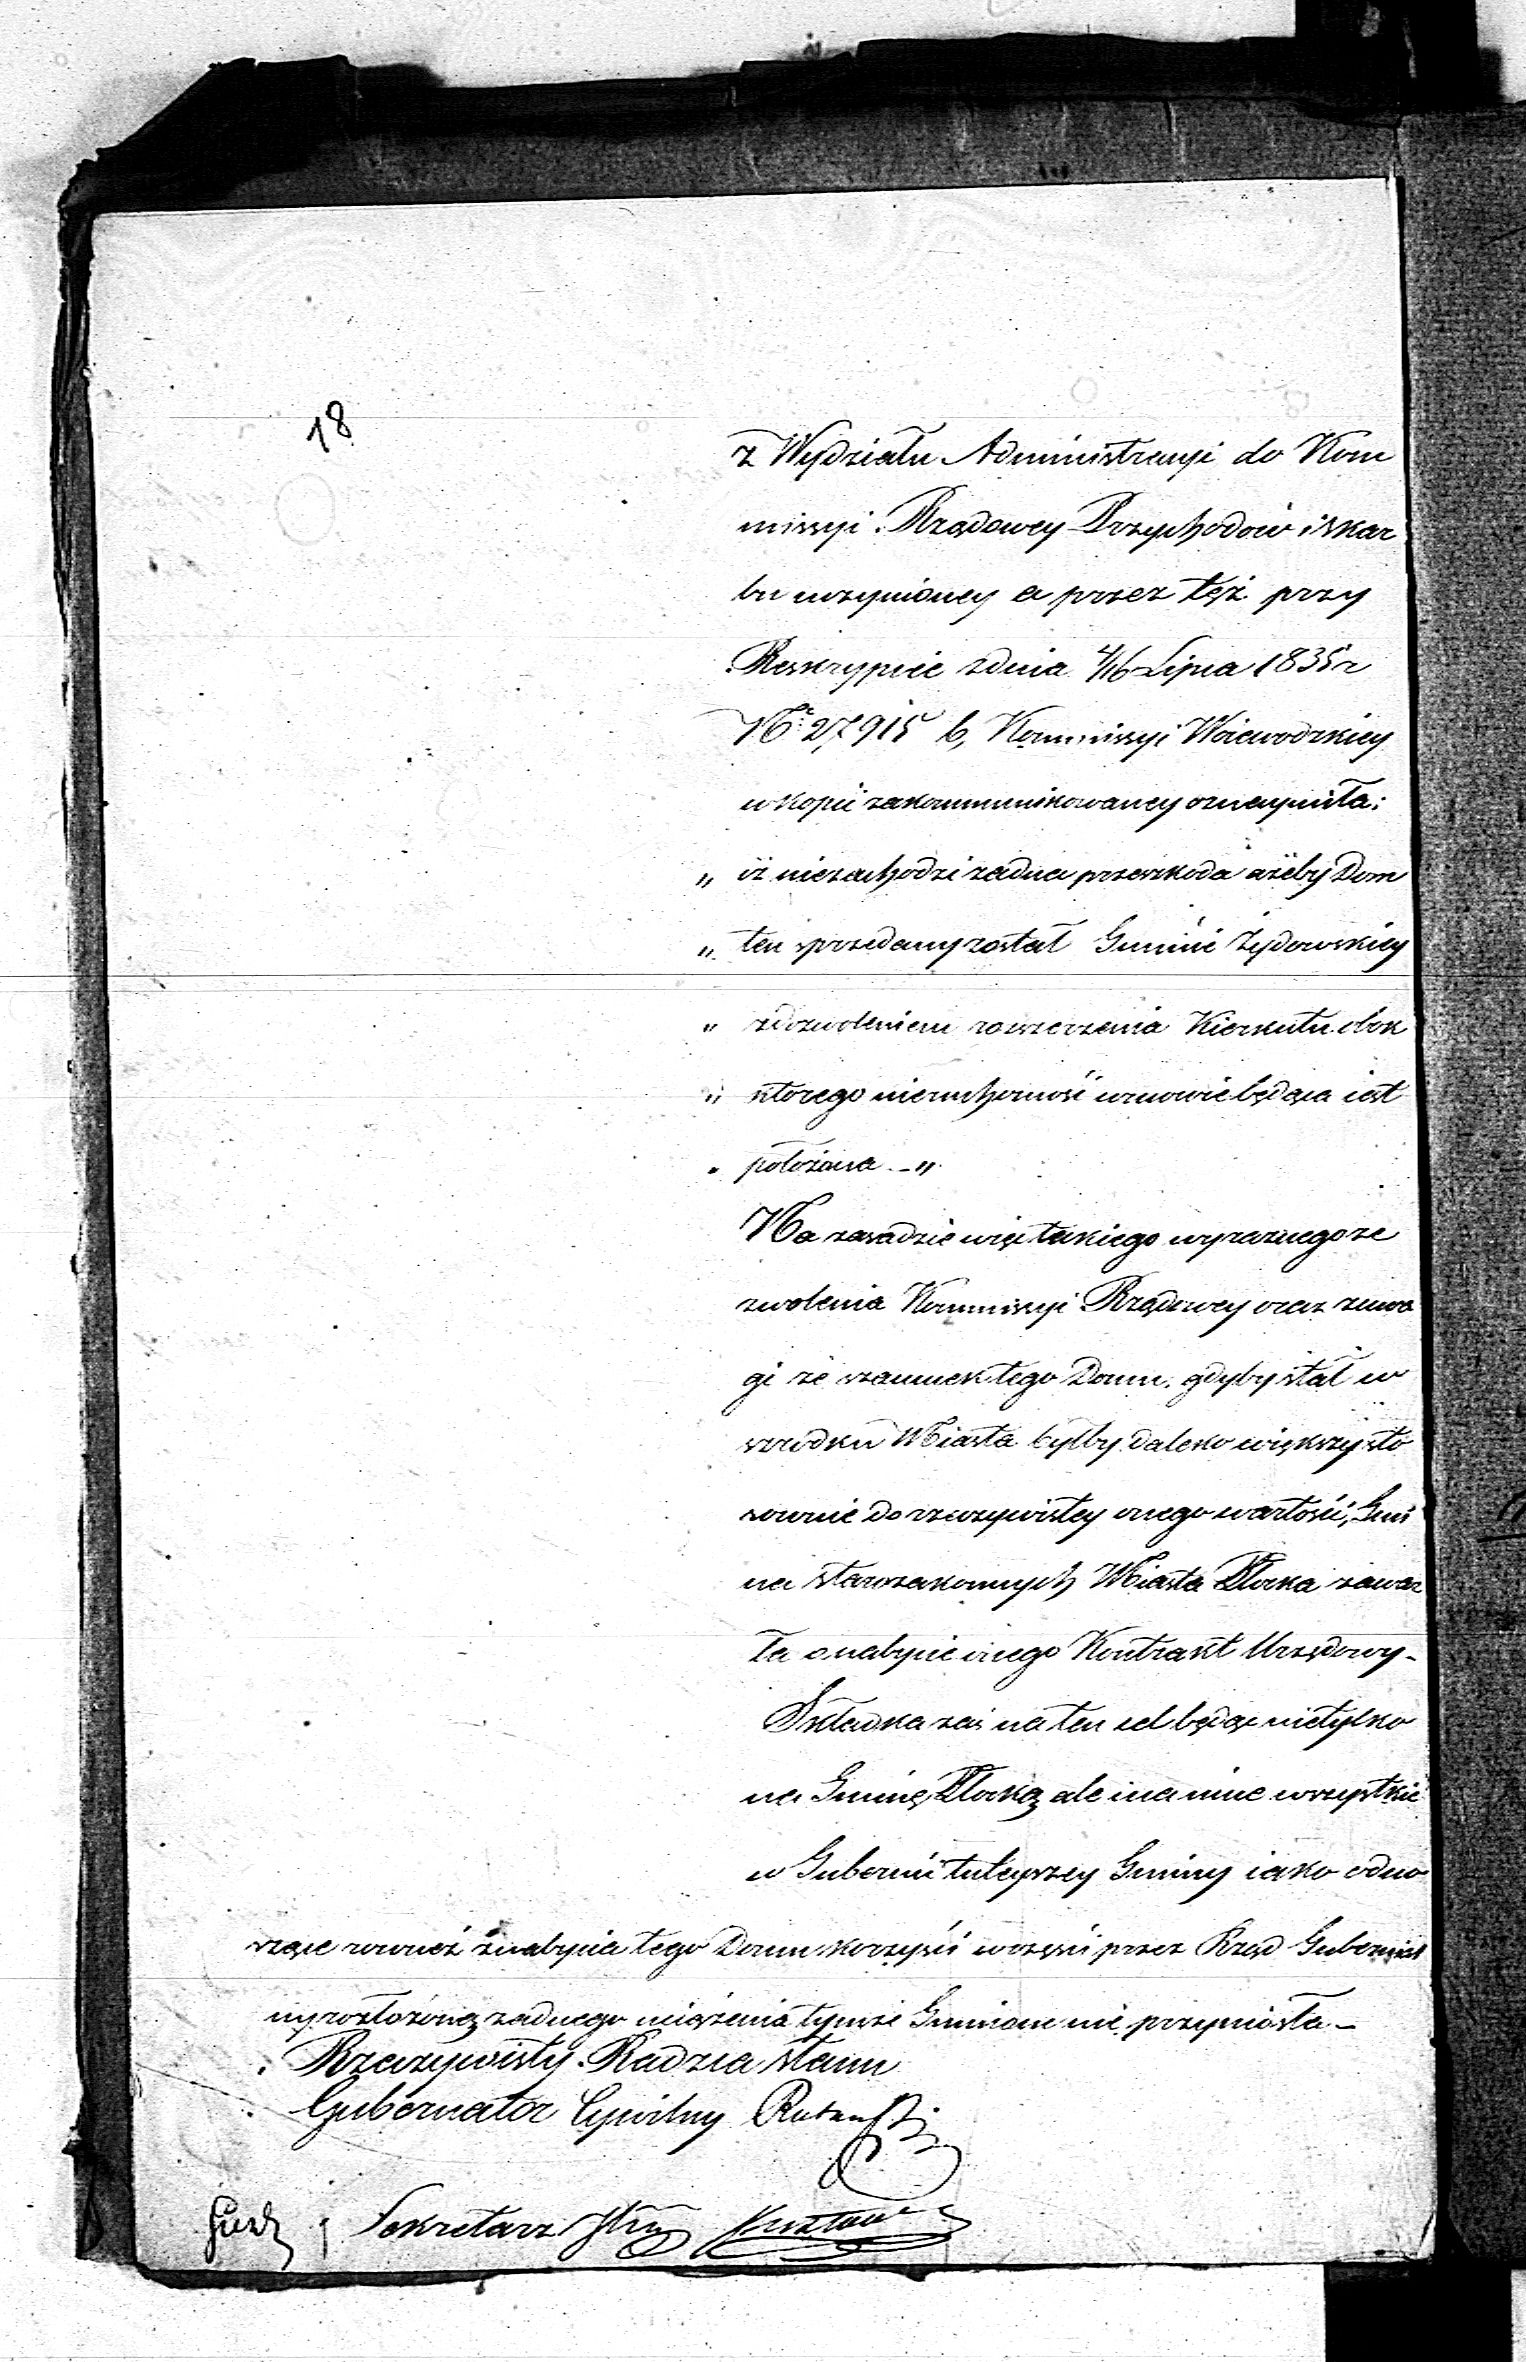 18
Z Wydziału Administracyi do Kom
missyi Rządowey Przychodów i Skar
bu uczynioney a przez tęż przy
Reskrypcie zdnia 4/16 Lipca 1835 r
Nr 27,915 b, Kommissyi Woiewodzkiey
w kopii zakommunikowaney oznaymiła:
„ iż niezachodzi żadna przeszkoda ażeby Dom
„ ten sprzedany został Gminie Żydowskiey
„ zdozwoleniem rozszerzenia Kierkutu obok
„ ktorego nieruchomość wmowie będąca iest
„ położona – „
Na zasadzie więc takiego wyraznego ze
zwolenia Kommissyi Rządowey oraz zuwa
gi że szacunek tego Domu, gdyby stał w
szrodku Miasta byłby daleko większy sto
sownie do rzeczywistey onego wartości, Gmi
na Starozakonnych Miasta Płocka zawar
ła o nabycie onego Kontrakt Urzędowy –
Składka zaś na ten cel będąc nietylko
na Gminę Płocką ale i na inne wszystkie
w Gubernii tuteyszey Gminy iako odno
szące rownéż znabycia tego Domu korzyści wczęści przez Rząd Gubernial
ny rozłożoną żadnego uciążenia tymże Gminom nie przyniosła –
Rzeczywisty Radzca Stanu
Gubernator Cywilny
Sekretarz